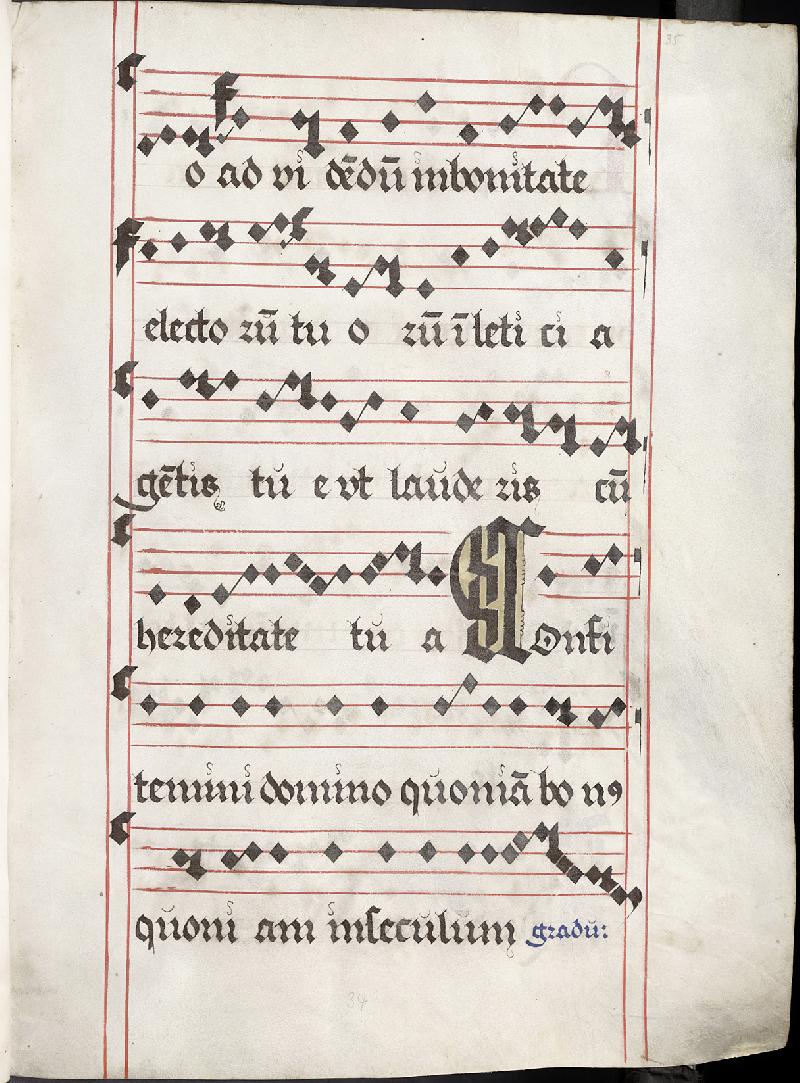 35
o ad vi dēdū in bonitate
electo rū tu o rū ī leti ci a
gētis tu e vt laude ris cū
hereditate tu a Confi
temini domino quoniā bo nꝰ
quoni am in seculum gradu:
34